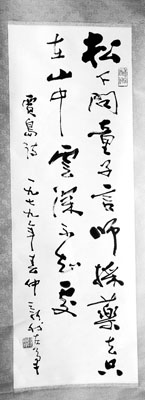 松下問童子言師採藥去只
在山中雲深不知處
賈島詩 一九七九年春仲